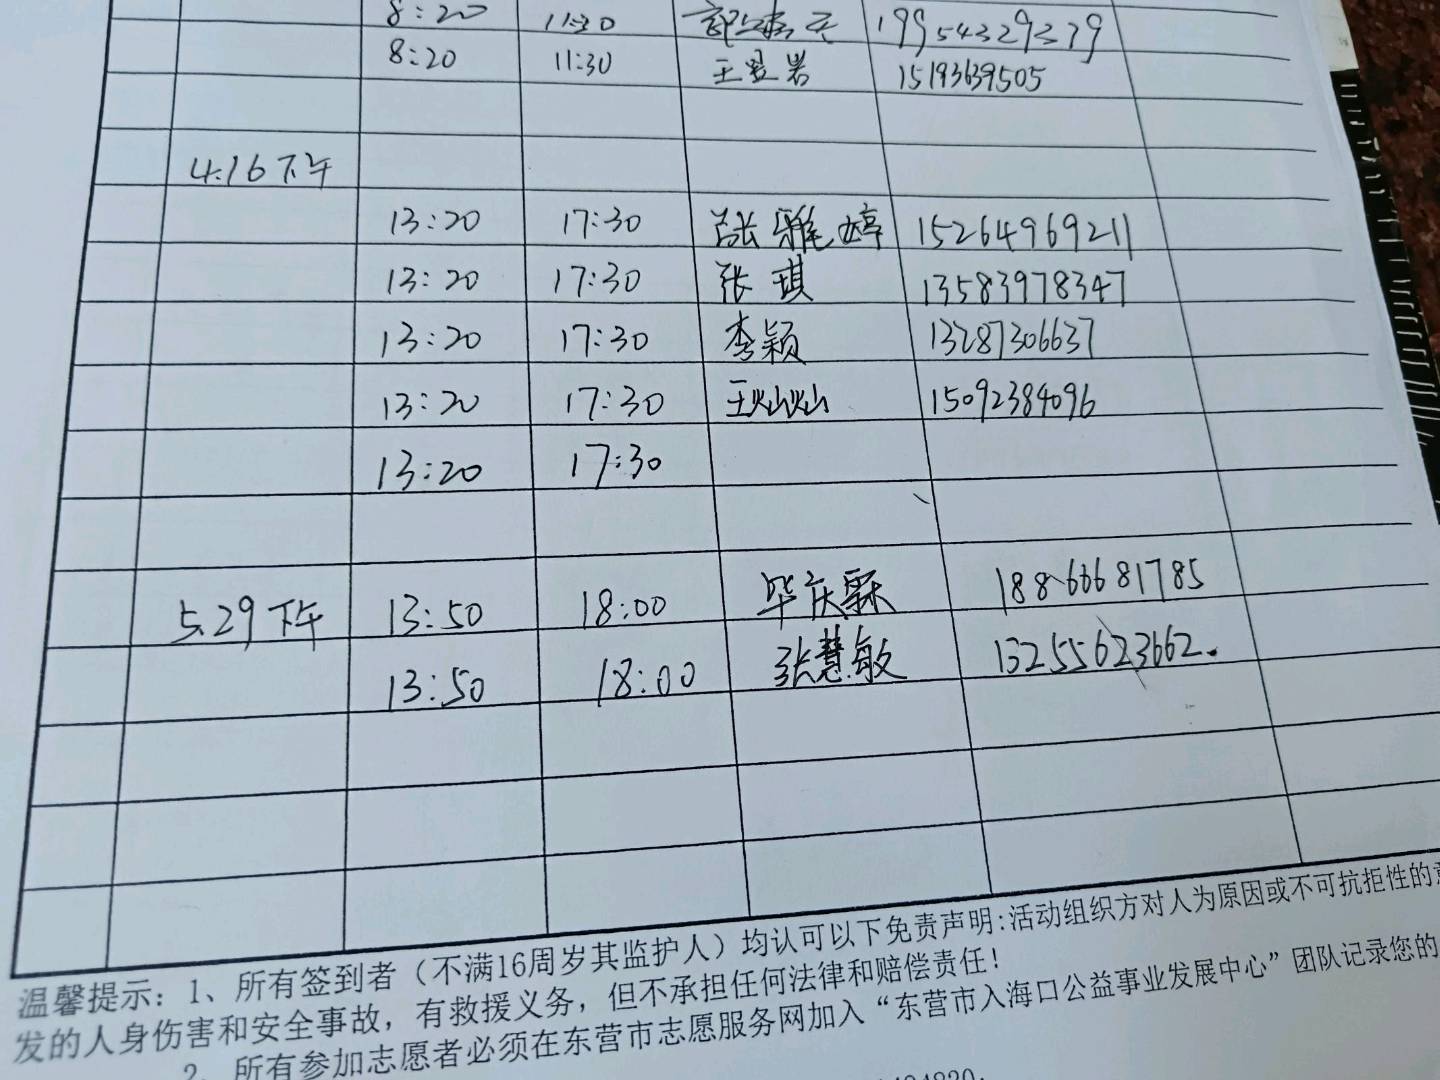 8:20 11:30 19954329379
8:20 11:30 王昱岩 15193639505
4.16下午
13:20 17:30 张雅婷 15264969211
13:20 17:30 张琪 13583978347
13:20 17:30 李颖 13287306637
13:20 17:30 王灿灿 15092384096
13:20 17:30
5.29下午 13:50 18:00 毕庆霖 18866681785
13:50 18:00 张慧敏 13255623662.
温馨提示：1、所有签到者（不满16周岁其监护人）均认可以下免责声明：活动组织方对人为原因或不可抗拒性的意
发的人身伤害和安全事故，有救援义务，但不承担任何法律和赔偿责任！
2、所有参加志愿者必须在东营市志愿服务网加入“东营市入海口公益事业发展中心”团队记录您的